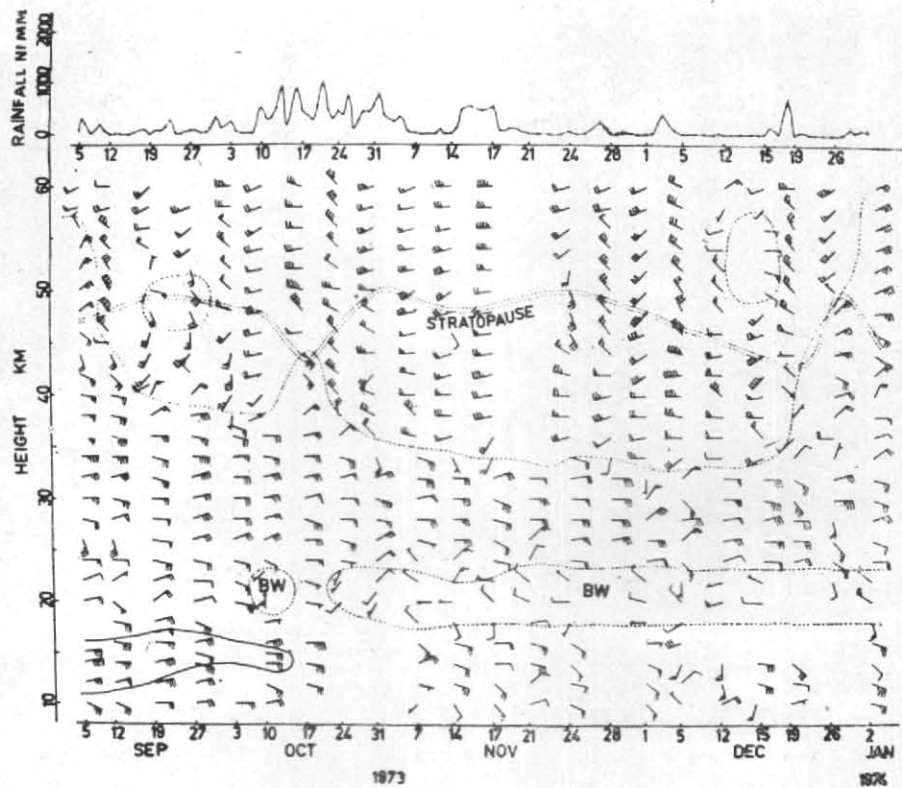 RAINFALL NI MM
2000
1000
0
5 12 19 27 3 10 17 24 31 7 14 17 21 24 28 1 5 12 15 19 26
HEIGHT KM
60
50
40
30
20
10
STRATOPAUSE
BW
BW
5 12 19 27 3 10 17 24 31 7 14 17 21 24 28 1 5 12 15 19 26 2
SEP OCT NOV DEC JAN
1973 1974